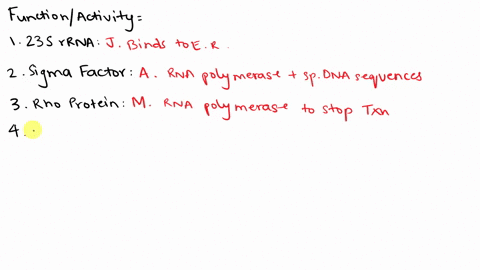 Function/Activity:
1. 23S rRNA: J. Binds to E.R.
2. Sigma Factor: A. RNA polymerase + sp. DNA sequences
3. Rho Protein: M. RNA polymerase to stop Txn
4.